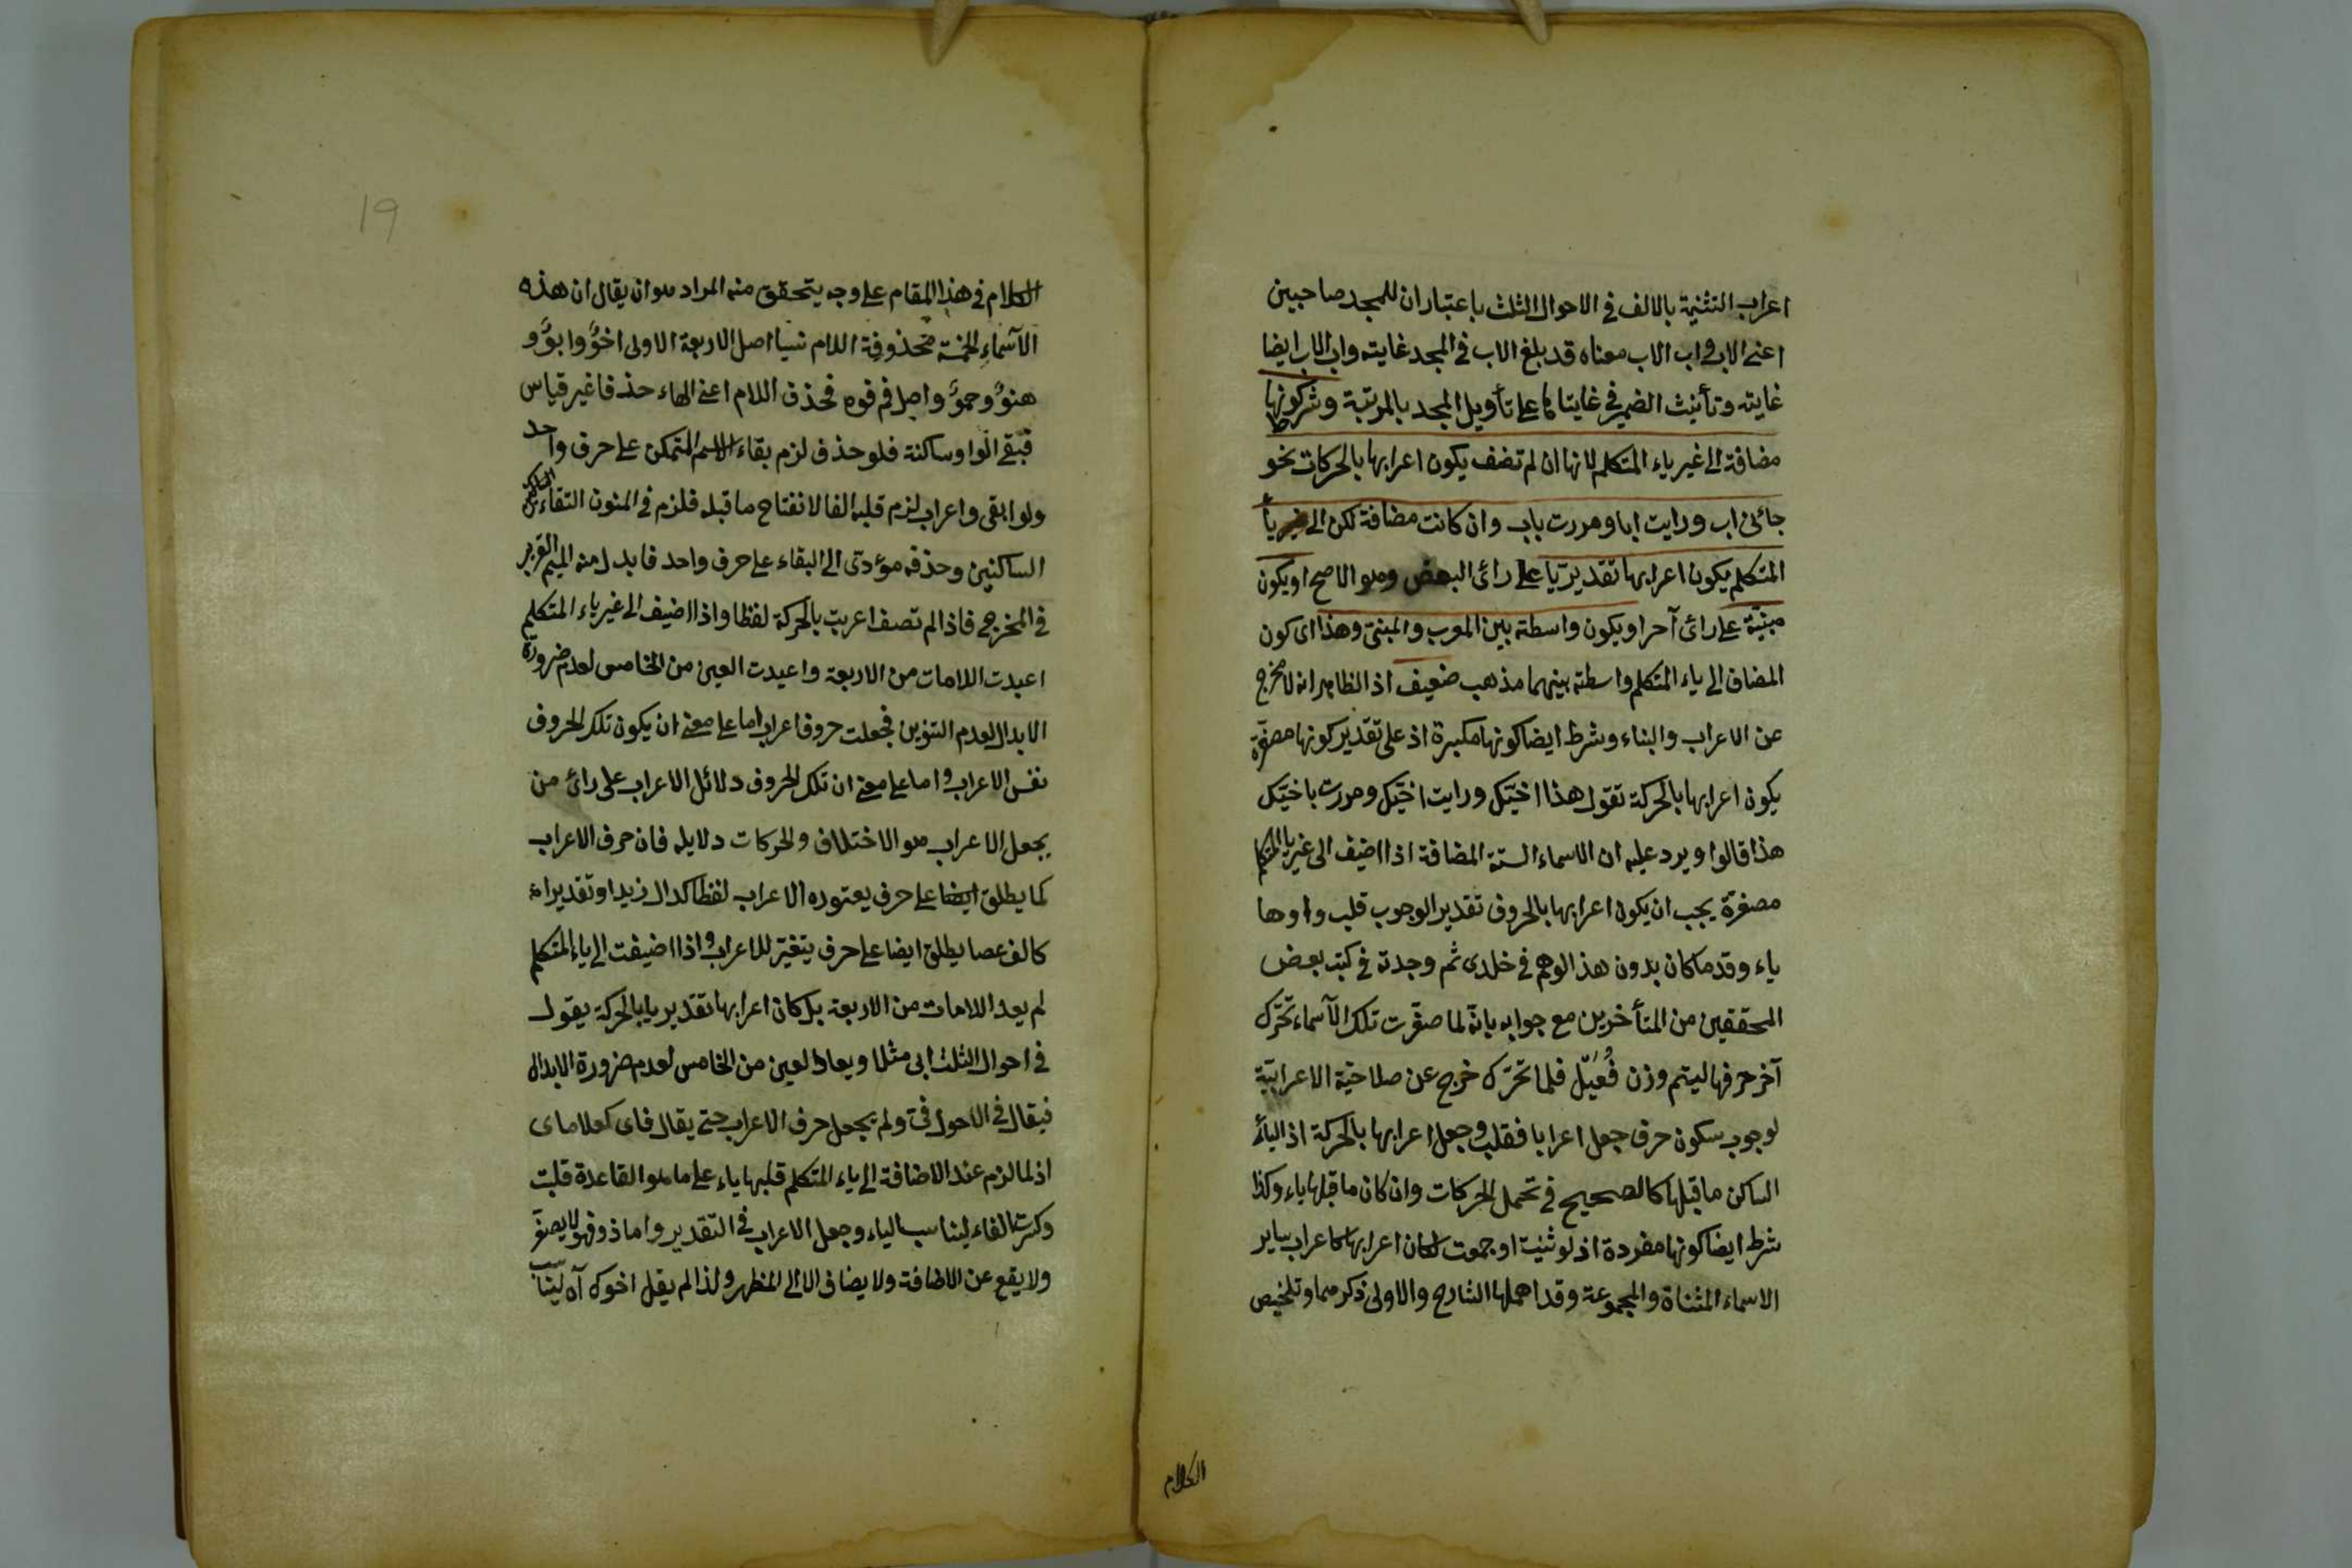 اعراب التثنية بالالف في الاحوال الثلث باعتبار ان للمجد صاحبين
اعنى الاب واب الاب معناه قد بلغ الاب في المجد غايته واب الاب ايضا
غايته وتأنيث الضمير في غايتاها على تأويل المجد بالمرتبة وشرط كونها
مضافة الى غير ياء المتكلم لانها ان لم تضف يكون اعرابها بالحركات نحو
جائنى اب ورايت ابا ومررت باب وان كانت مضافة لكن الى يا
المتكلم يكون اعرابها تقديريّا على رائ البعض وهو الاصح او يكون
مبنيّة على رائ آخر او يكون واسطة بين المعرب والمبنى وهذا اى كون
المضاف الى ياء المتكلم واسطة بينهما مذهب ضعيف اذ الظاهر انه لا مخرج
عن الاعراب والبناء وشرط ايضا كونها مكبرة اذ على تقدير كونها مصغّرة
يكون اعرابها بالحركة تقول هذا اخيّك ورايت اخيّك ومررت باخيّك
هذا قالوا ويرد عليه ان الاسماء الستة المضافة اذا اضيف الى غير يا المتكلم
مصغرة يجب ان يكون اعرابها بالحروف تقدير الوجوب قلب واوها
ياء وقدما كان بدون هذا الوهم في خلدى ثم وجدته في كتب بعض
المحققين من المتأخرين مع جوابه بانّه لما صغّرت تلك الآسماء تحّرك
آخر حرفها ليتم وزن فُعَيْل فلما تحّرك خرج عن صلاحيّة الاعرابيّة
لوجوب سكون حرف جعل اعرابا فقلب وجعل اعرابها بالحركة اذ اليأ
الساكن ما قبلها كالصحيح في تحمل الحركات وان كان ما قبلها ياء وكذا
شرط ايضا كونها مفردة اذ لو ثنيت او جمعت لكان اعرابها كاعراب ساير
الاسماء المثناة والمجموعة وقد اهملها الشارح والاولى ذكرهما وتلخيص
الكلام
19
الكلام في هذا المقام على وجه يتحقق منه المراد هو ان يقال ان هذه
الآسماء الخمسة محذوفة اللام نسيا اصل الاربعة الاولى اخوٌ وابوٌ و
هنوٌ وحموٌ واصل فم فوه فحذف اللام اعنى الهاء حذفا غير قياس
فبقى الواو ساكنة فلو حذف لزم بقاء الاسم المتمكن على حرف واحد
ولو ابقى واعراب لزم قلبه الفا لانفتاح ما قبله فلزم في المنون التقاء
الساكنين وحذفه مؤدّى الى البقاء على حرف واحد فابدل منه الميم القريبر
في المخرج فاذا لم تضف اعربت بالحركة لفظا واذا اضيف الى غير ياء المتكلم
اعيدت اللامات من الاربعة واعيدت العين من الخامس لعدم ضرورة
الابدال لعدم التنوين فجعلت حروف اعراب اما على معنى ان يكون تلك الحروف
نفس الاعراب واما على معنى ان تلك الحروف دلائل الاعراب على رائ من
يجعل الاعراب هو الاختلاف والحركات دلايله فان حرف الاعراب
كما يطلق ايضا على حرف يعتوره الاعراب لفظا كدال زيد او تقديرا
كالف عصا يطلق ايضا على حرف يتغيّر للاعراب واذا اضيفت الى ياء المتكلم
لم يعد اللامات من الاربعة بل كان اعرابها تقديريا بالحركة يقول
في احوال الثلث ابى مثلا ويعاد العين من الخامس لعدم ضرورة الابدال
فيقال في الاحوال فيّ ولم يجعل حرف الاعراب حتى يقال فاى كعلاماى
اذ لما لزم عند الاضافة الى ياء المتكلم قلبها ياء على ما هو القاعدة قلبت
وكسرت الفاء ليناسب الياء وجعل الاعراب في التقدير واما ذو فهو لا يصغّر
ولا يقع عن الاضافة ولا يضاف الا الى المظهر ولذا لم يقل اخوك آه ليناسب